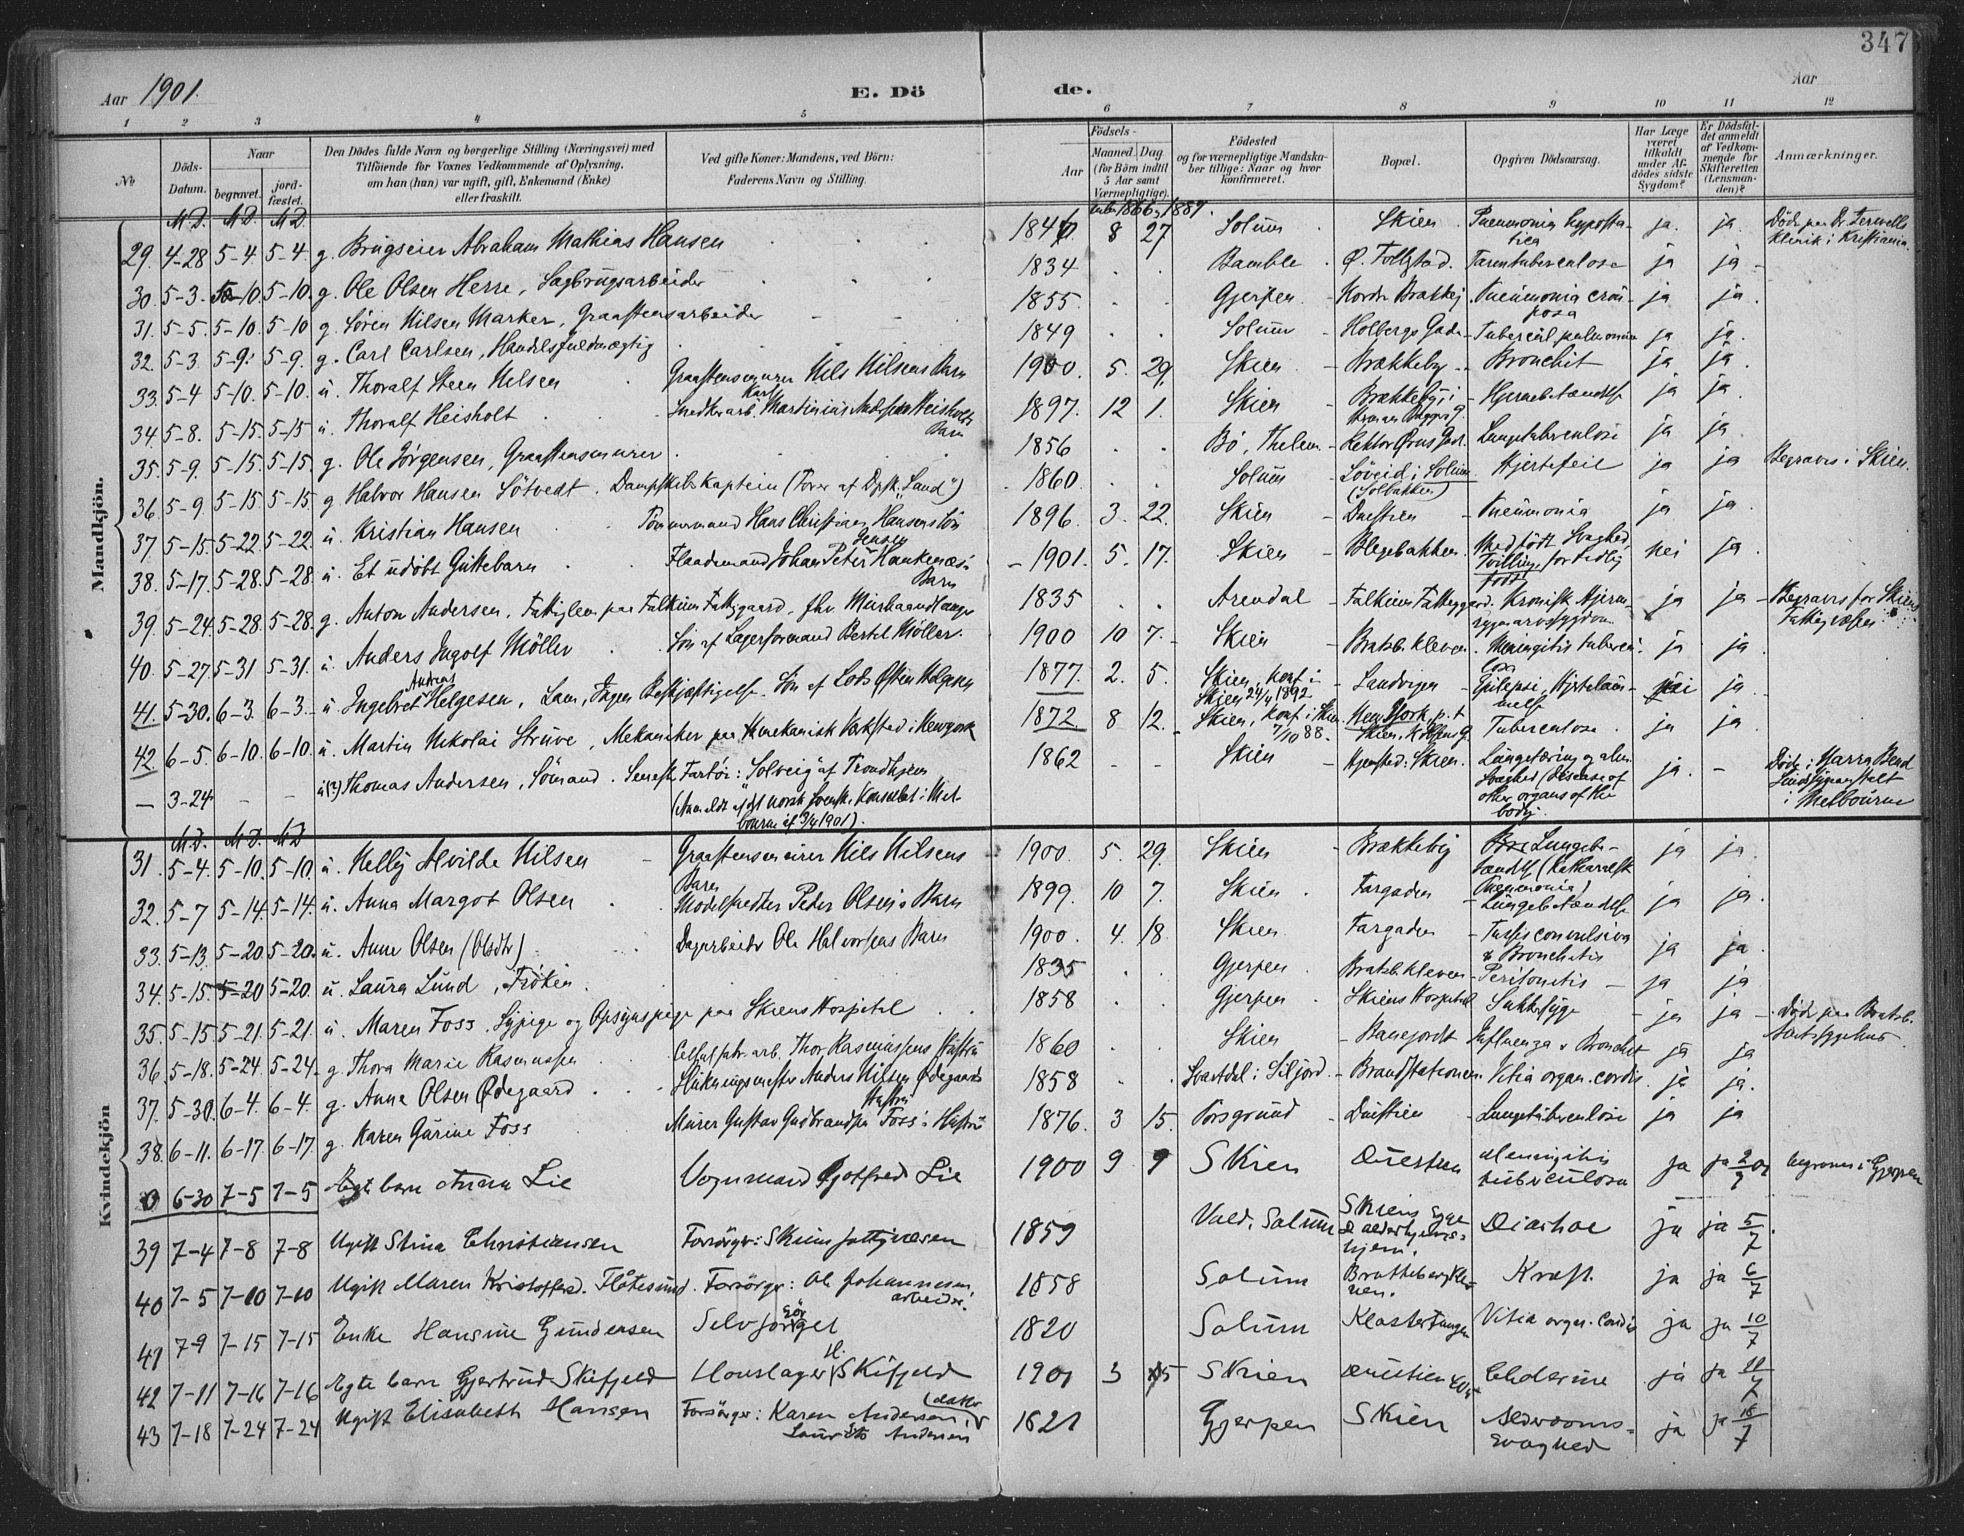 347
Aar 1901.
E. Dö de.
Aar
1 2 3 4 5 6 7 8 9 10 11 12
No
Döds-Datum.
Naar begravet. jordfæstet.
Den Dödes fulde Navn og borgerlige Stilling (Næringsvei) med Tilföiende for Voxnes Vedkommende af Oplysning, om han (hun) var ugift, gift, Enkemand (Enke) eller fraskilt.
Ved gifte Koner: Mandens, ved Börn: Faderens Navn og Stilling.
Födsels- Aar Maaned. Dag (for Börn indtil 5 Aar samt Værnepligtige).
Födested og for værnepligtige Mandskaber tillige: Naar og hvor konfirmeret.
Bopæl.
Opgiven Dödsaarsag.
Har Læge været tilkaldt under Afdødes sidste Sygdom?
Er Dödsfaldet anmeldt af Vedkommende for Skifteretten (Lensmanden)?
Anmærkninger.
Mandkjön.
M D. M D. M D.
29. 4-28 5-4 5-4 g. Brugseier Abraham Mathias Hansen 1846 8 27 Solum Skien Pneumonia hypostatica ja. ja. Döde paa Dr Klinik i Kristiania
30. 5-3. 5-10 5-10. g. Ole Olsen Herre, Sagbrugsarbeider 1834 Bamble Ø. Follestad. Tarmtuberculose ja ja
31. 5-5. 5-10. 5-10 g. Sören Nilsen Marker, Graastensarbeider 1855 Gjerpen Nordre Brækkeby Pneumonia crouposa ja ja.
32. 5-3. 5-9. 5-9. g. Carl Carlsen, Handelsfuldmægtig 1849 Solum Holbergs Gade Tubercul. pulmonum ja ja.
33. 5-4 5-10. 5-10. u. Thoralf Steen Nilsen Graastensmurer Nils Nilsens Barn 1900. 5. 29. Skien Brækkeby Bronchit ja ja
34. 5-8. 5-15. 5-15 u. Thoralf Heisholt Snedkerarb. Karl Martinius Andersen Heisholts Barn 1897. 12 1. Skien Brækkeby i Gd. Hjernebetændelse ja ja.
35. 5-9. 5-15. 5-15. g. Ole Jörgensen, Graastensmurer 1856 Bö, Thelem. Rektor Ørns Gd. Lungetuberculose ja ja.
36. 5-9 5-15. 5-15. g Halvor Hansen Götvedt. Dampskibskaptein (Förer af Dpsk. "Sand") 1860. Solum Löveid i Solum (Solbakken) Hjertefeil ja ja Begraves i Skien.
37. 5-15. 5-22. 5-22. u. Kristian Hansen Tömmermand Hans Christian Hansens Sön 1896. 3. 22. Skien Duestien Pneumonia ja ja
38. 5-17. 5-28. 5-28. u. Et udöbt Guttebarn Flaademand Johan Peter Jensen Hankenæs's Barn 1901. 5. 17. Skien Blegebakken. Medfödt Svaghed Tvilling for tidlig födt nei ja.
39. 5-24. 5-28. 5-28. g. Anton Andersen, Fattiglem paa Falkum Fattiggaard, fhv. Murhaandlanger 1835 Arendal Falkum Fattiggaard. Kronisk Hjerne-rygmarvssygdom ja ja Begraves for Skiens Fattigvæsen
40. 5-27. 5-31 5-31. u. Anders Ingolf Möller Sön af Lagerformand Bertel Möller. 1900 10 7. Skien Bratsb.kleven. Meningitis tuberculosa ja ja.
41. 5-30. 6-3. 6-3. u Ingebret Andreas Helgesen, Lam, Ingen Beskjæftigelse. Sön af Lods Østen Helgesen 1877. 2. 5. Skien, konf i Skien 24/4 1892 Landvigen Epilepsi, Hjertelammelse nei ja
42. 6-5. 6-10. 6-10. u. Martin Nikolai Struve, Mekaniker paa Mekanisk Værksted i Newyork 1872. 8 12. Skien, konf. i Skien 7/10 88. New York, p.t Skien, Tuberculose. ja ja
— 3-24 u(?) Thomas Andersen, Sömand. Seneste Fartöi: "Solveig" af Trondhjem (Anmeldt af det norsk svenske Konsulat i Melbourne af 3/4 1901). 1862 Skien Hjemsted: Skien. Lungetæring og alm. Svaghed (disease of other organs of the body). ja. Döde i Yarra Bend Sindssygeanstalt i Melbourne
Kvindekjön
M. D. M D. M D
31. 5-4. 5-10. 5-10. u. Nelly Alvilde Nilsen Graastensmurer Nils Nilsens Barn 1900. 5. 29. Skien Brækkeby Lungebetændelse (Katharralsk Pneumonia) ja ja
32. 5-7 5-14. 5-14. u. Anna Margot Olsen Modelsnedker Peder Olsen's Barn 1899. 10 7. Skien Fargaden Lungebetændelse ja ja.
33. 5-13. 5-20. 5-20. u. Anne Olsen (Olsdtr) Dagarbeider Ole Halvorsens Barn 1900. 4. 18. Skien. Fargaden Tussis convulsiva & Bronchitis ja ja
34. 5-15. 5-20 5-20. u. Laura Lund, Fröken. 1835 Gjerpen. Bratsb.kleven Peritonitis ja ja
35. 5-15. 5-21. 5-21. u. Maren Foss. Sypige og Opsynspige paa Skiens Hospital 1858 Gjerpen Skiens Hospital Sukkersyge ja ja Döde paa Bratsb. Amtssygehus
36. 5-18. 5-24. 5-24. g. Thora Marie Rasmussen Cellul.fabr.arb. Thor Rasmussens Hustru 1860 Skien Influenza & Bronchit ja ja
37. 5-30. 6-4. 6-4. g. Anne Olsen Ødegaard Anders Nilsen Ødegaards Hustru 1858 Svartdal i Siljord. Brandstationen. Vitia organ. cordis. ja ja.
38. 6-11. 6-17. 6-17. g. Karen Gurine Foss Murer Gustav Gudbrandsen Foss's Hustru 1876. 3 15. Porsgrund Duestien Lungetuberculose ja ja
0 6-30 7-5 7-5 Ægte barn Anna Lie Vognmand Gotfred Lie 1900 9 9 Skien Duestien Meningitis tuberculosa ja ja 2/7 01 begraves i Gjerpen
39 7-4 7-8 7-8 Ugift Stina Christiansen Forsörger: Skiens fattigvæsen 1859 Vald, Solum Skiens syge & alderhjems-hjem. Diarhoe ja ja 5/7.
40 7-5 7-10 7-10 Ugift Maren Kristoffersd. Flåtesund. Forsörger: Ole Johannesen, arbeider. 1858 Solum Bratsbergkleven. Kræft. ja ja 6/7
41 7-9 7-15 7-15 Enke Hansine Gundersen Selvforsörget 1820 Solum Klostertangen Vitia organ. Cordis ja ja 10/7
42 7-11 7-16 7-16 Ægte barn Gjertrud Skifjeld H. Skifjeld 1901 3 15 Skien Duestien Cholerine ja ja 11/7
43 7-18 7-24 7-24 Ugift Elisabeth Hansen Forsörger: Karen Andersen, (datter) Laurits Andersen 1821 Gjerpen Skien Alderdoms-svaghed ja ja 18/7